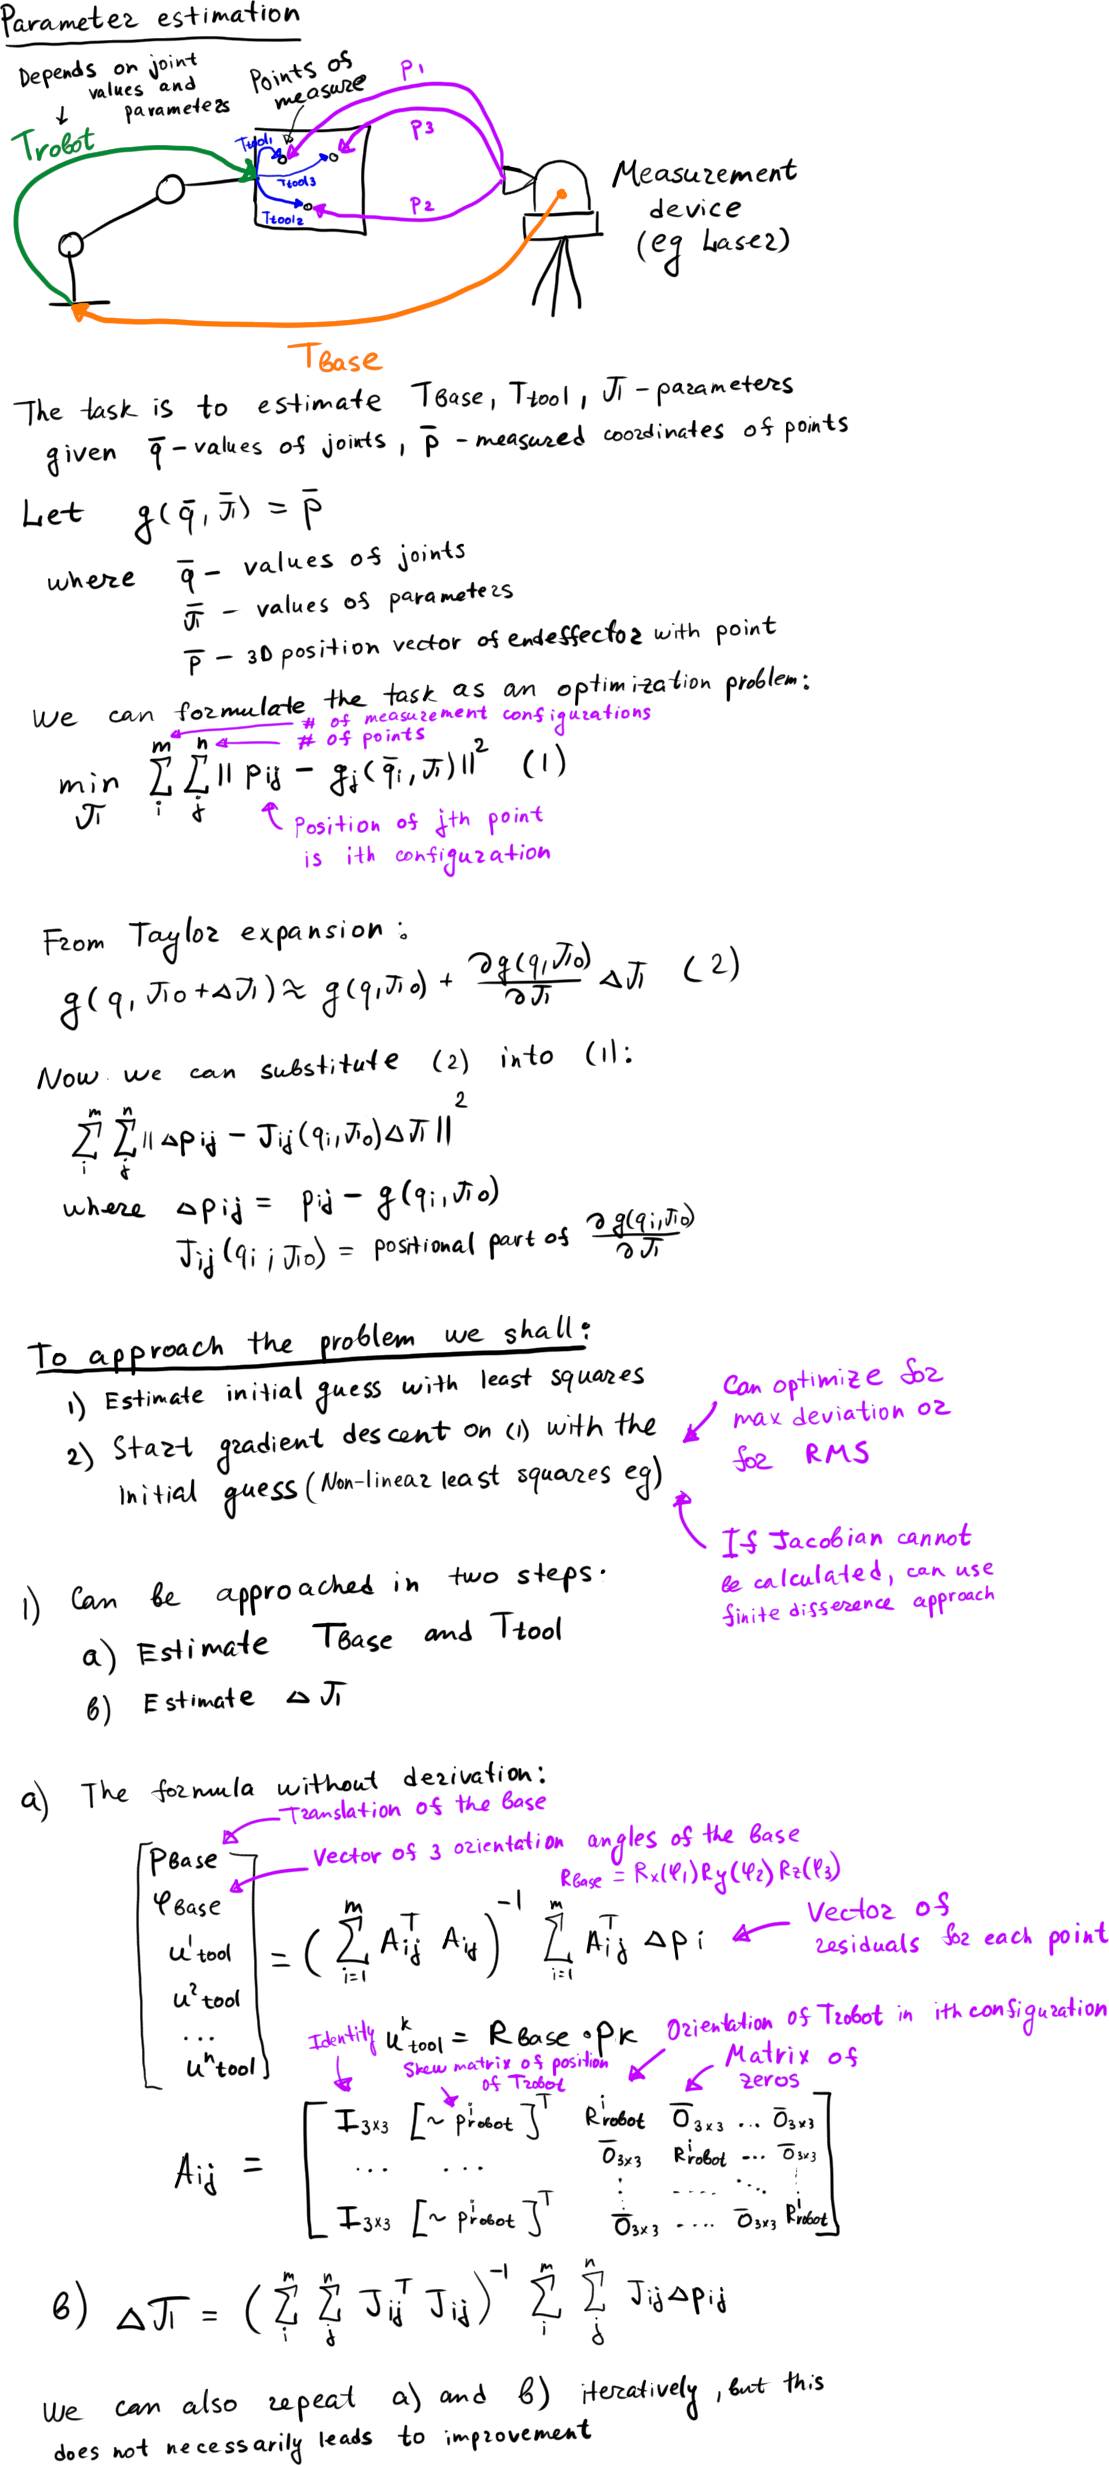 Parameter estimation
Depends on joint
values and
parameters
Points of
measure
Trobot
Ttool1
Ttool3
Ttool2
P1
P3
P2
Measurement
device
(eg Laser)
TBase
The task is to estimate TBase, Ttool, π - parameters
given q̄ - values of joints, p̄ - measured coordinates of points
Let g(q̄, π̄) = p̄
where q̄ - values of joints
π̄ - values of parameters
p̄ - 3D position vector of endeffector with point
We can formulate the task as an optimization problem:
# of measurement configurations
# of points
min π Σ_i^m Σ_j^n || pij - gj(q̄i, π) ||² (1)
Position of jth point
is ith configuration
From Taylor expansion:
g(q, π0 + Δπ) ≈ g(q, π0) + ∂g(q, π0)/∂π Δπ (2)
Now we can substitute (2) into (1):
Σ_i^m Σ_j^n || Δpij - Jij(qi, π0)Δπ ||²
where Δpij = pij - g(qi, π0)
Jij(qi; π0) = positional part of ∂g(qi, π0)/∂π
To approach the problem we shall:
1) Estimate initial guess with least squares
2) Start gradient descent on (1) with the
initial guess (Non-linear least squares eg)
Can optimize for
max deviation or
for RMS
If Jacobian cannot
be calculated, can use
finite difference approach
1) Can be approached in two steps.
a) Estimate TBase and Ttool
b) Estimate Δπ
a) The formula without derivation:
Translation of the Base
Vector of 3 orientation angles of the Base
RBase = Rx(φ1)Ry(φ2)Rz(φ3)
[PBase
φBase
u¹tool
u²tool
...
uⁿtool]
= (Σ_{i=1}^m Aij^T Aij)^-1 Σ_{i=1}^m Aij^T Δpi
Vector of
residuals for each point
u^k tool = RBase · Pk
Identity
Skew matrix of position
of Trobot
Orientation of Trobot in ith configuration
Matrix of
zeros
Aij = [ I3x3 [~ p^i robot]^T R^i robot Ō3x3 ... Ō3x3
... ... Ō3x3 R^i robot ... Ō3x3
I3x3 [~ p^i robot]^T Ō3x3 .... Ō3x3 R^i robot ]
b) Δπ = (Σ_i^m Σ_j^n Jij^T Jij)^-1 Σ_i^m Σ_j^n Jij Δpij
We can also repeat a) and b) iteratively, but this
does not necessarily leads to improvement